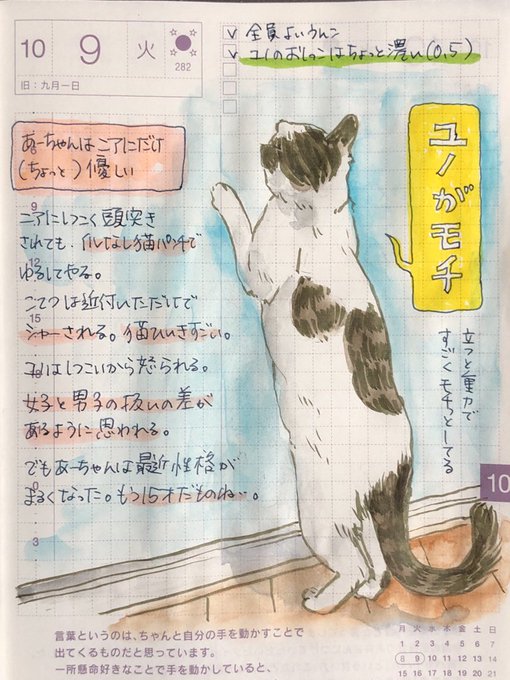 10 9 火
282
旧：九月一日
v 全員よいうんこ
v ユノのおしっこはちょっと濃い(0.5)
あーちゃんはニアにだけ
(ちょっと)優しい
ユノがモチ
9
ニアにしつこく頭突き
されても、爪なし猫パンチで
12
ゆるしてやる。
こてつは近付いただけで
15
シャーされる。猫ひいきすごい。
ユノはしつこいから怒られる。
女子と男子の扱いの差が
あるように思われる。
でもあーちゃんは最近性格が
まるくなった。もう15才だものね…。
立つと重力で
すごくモチっとしてる
10
3
言葉というのは、ちゃんと自分の手を動かすことで
出てくるものだと思っています。
一所懸命好きなことで手を動かしていると、
月 火 水 木 金 土 日
1 2 3 4 5 6 7
8 9 10 11 12 13 14
15 16 17 18 19 20 21